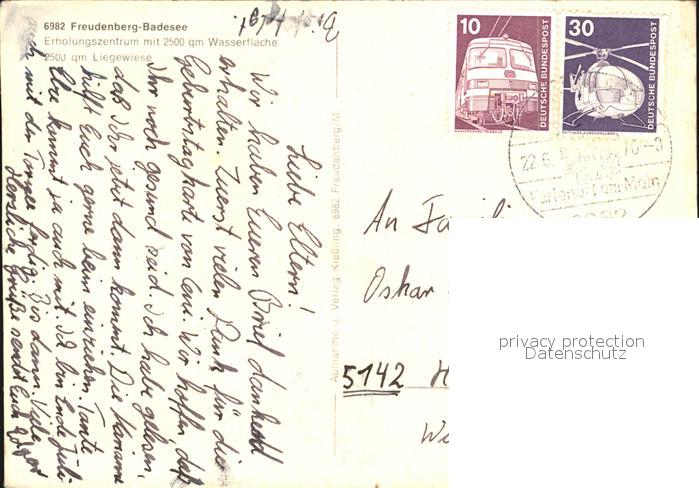 6982 Freudenberg-Badesee
Erholungszentrum mit 2500 qm Wasserfläche
2500 qm Liegewiese
Liebe Eltern!
Wir haben Euren Brief dankend
erhalten. Zuerst vielen Dank für die
Geburtstagskarte von Wir hoffen, daß
Ihr noch gesund seid. Ich habe gelesen,
daß Ihr jetzt dann kommt. Die Mariane
hilft Euch gerne beim einziehen. Tante
kommt ja auch mit. Ich bin Ende Juli
auch mit der fertig. Bis dann. Viele
Herzliche Grüße sendet Euch
Aufnahme u. Verlag Kießling, 6982 Freudenberg/M.
10
DEUTSCHE BUNDESPOST
30
DEUTSCHE BUNDESPOST
22.6.
am Main
An Fa
Oskar
5142 H
We
privacy protection
Datenschutz